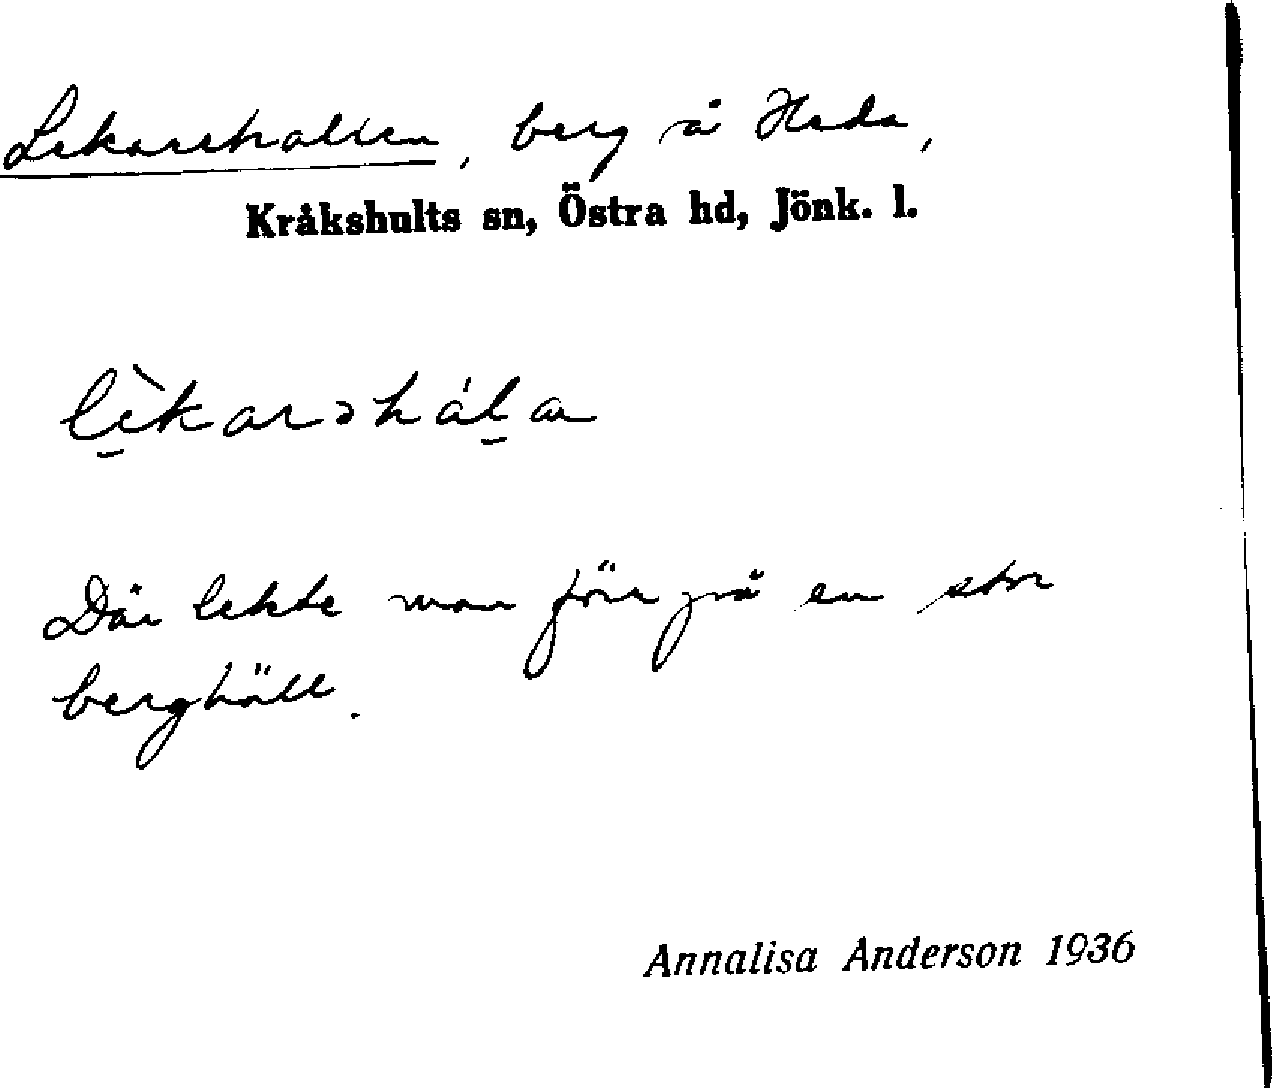 Lekarehallen, berg å Heda,
Kråkshults sn, Östra hd, Jönk. l.
lèkarəhál̠a
Där lekte man förr på en stor
berghäll.
Annalisa Anderson 1936